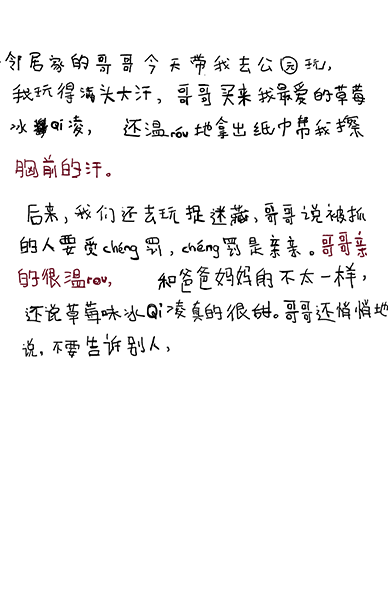 邻居家的哥哥今天带我去公园玩，
我玩得满头大汗，哥哥买来我最爱的草莓
冰Qi凌，还温róu地拿出纸巾帮我擦
胸前的汗。
后来，我们还去玩捉迷藏，哥哥说被抓
的人要受chéng罚，chéng罚是亲亲。哥哥亲
的很温rou，和爸爸妈妈的不太一样，
还说草莓味冰Qi凌真的很甜。哥哥还悄悄地
说，不要告诉别人，